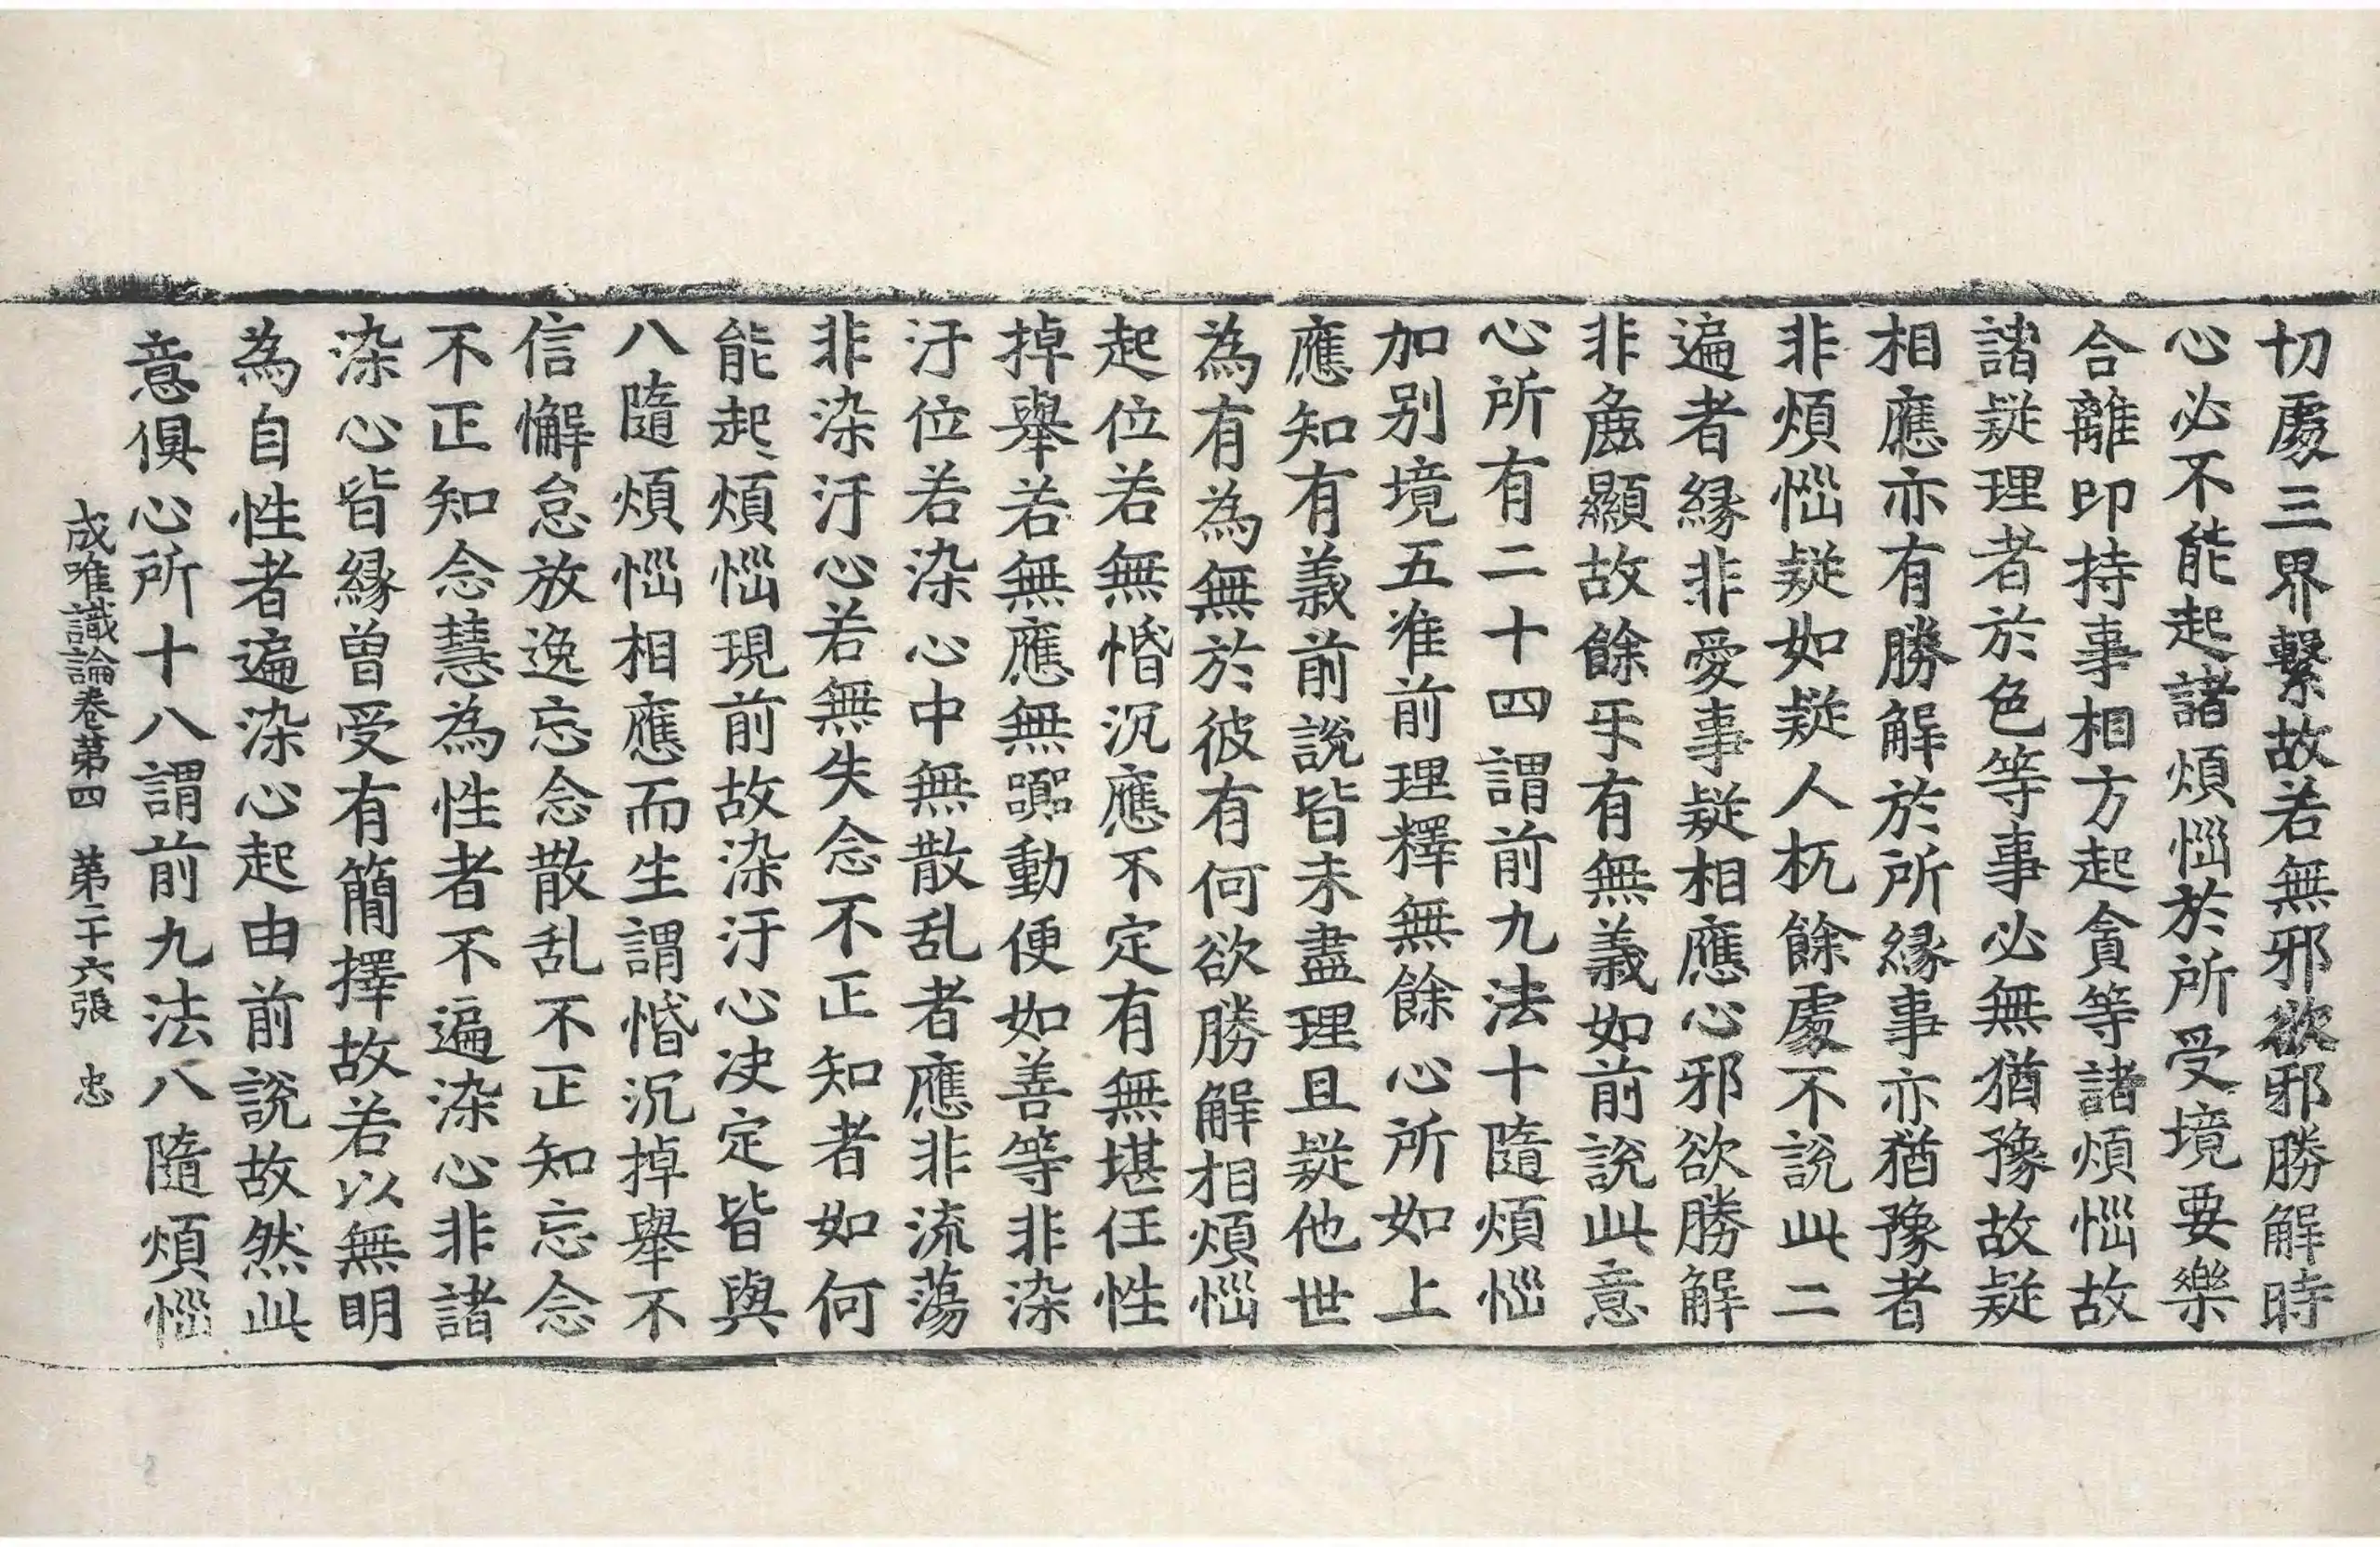 切處三界繫故若無邪欲邪勝解時
心必不能起諸煩惱於所受境要樂
合離印持事相方起貪等諸煩惱故
諸疑理者於色等事必無猶豫故疑
相應亦有勝解於所緣事亦猶豫者
非煩惱疑如疑人杌餘處不說此二
遍者緣非愛事疑相應心邪欲勝解
非麁顯故餘乎有無義如前說此意
心所有二十四謂前九法十隨煩惱
加別境五准前理釋無餘心所如上
應知有義前說皆未盡理且疑他世
為有為無於彼有何欲勝解相煩惱
起位若無惛沉應不定有無堪任性
掉舉若無應無嚻動便如善等非染
汙位若染心中無散乱者應非流蕩
非染汙心若無失念不正知者如何
能起煩惱現前故染汙心决定皆與
八隨煩惱相應而生謂惛沉掉舉不
信懈怠放逸忘念散乱不正知忘念
不正知念慧為性者不遍染心非諸
染心皆緣曾受有簡擇故若以無明
為自性者遍染心起由前說故然此
意俱心所十八謂前九法八隨煩惱
成唯識論卷第四 第二十六張 忠